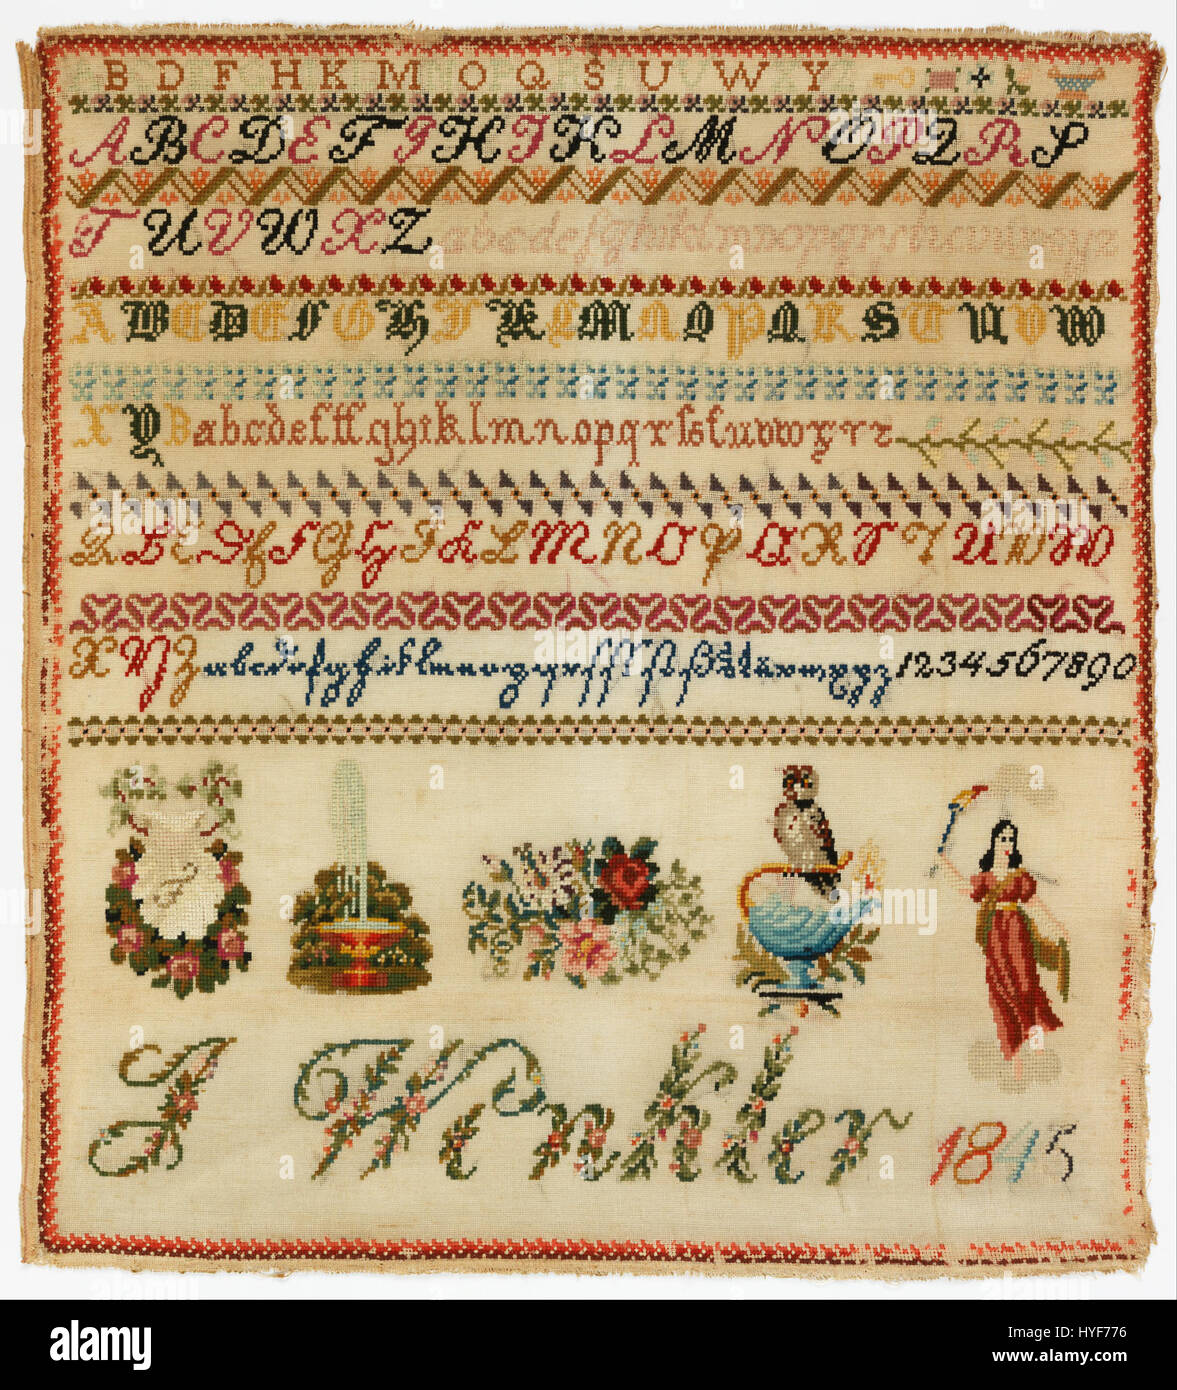 B D F H K M O Q S U W Y
A B C D E F G H I K L M N O P Q R S
T U V W X Z a b c d e f g h i k l m n o p q r s
A B C D E F G H I K L M N O P Q R S T U V W
X Y Z a b c d e f ff g h i k l m n o p q r ſs ſ t u v w x y r z
A B C D E f G H I K L M N O P Q R S T U V W
X Y Z 1234567890
J Winkler 1845
alamy
Image ID: HYF776
www.alamy.com